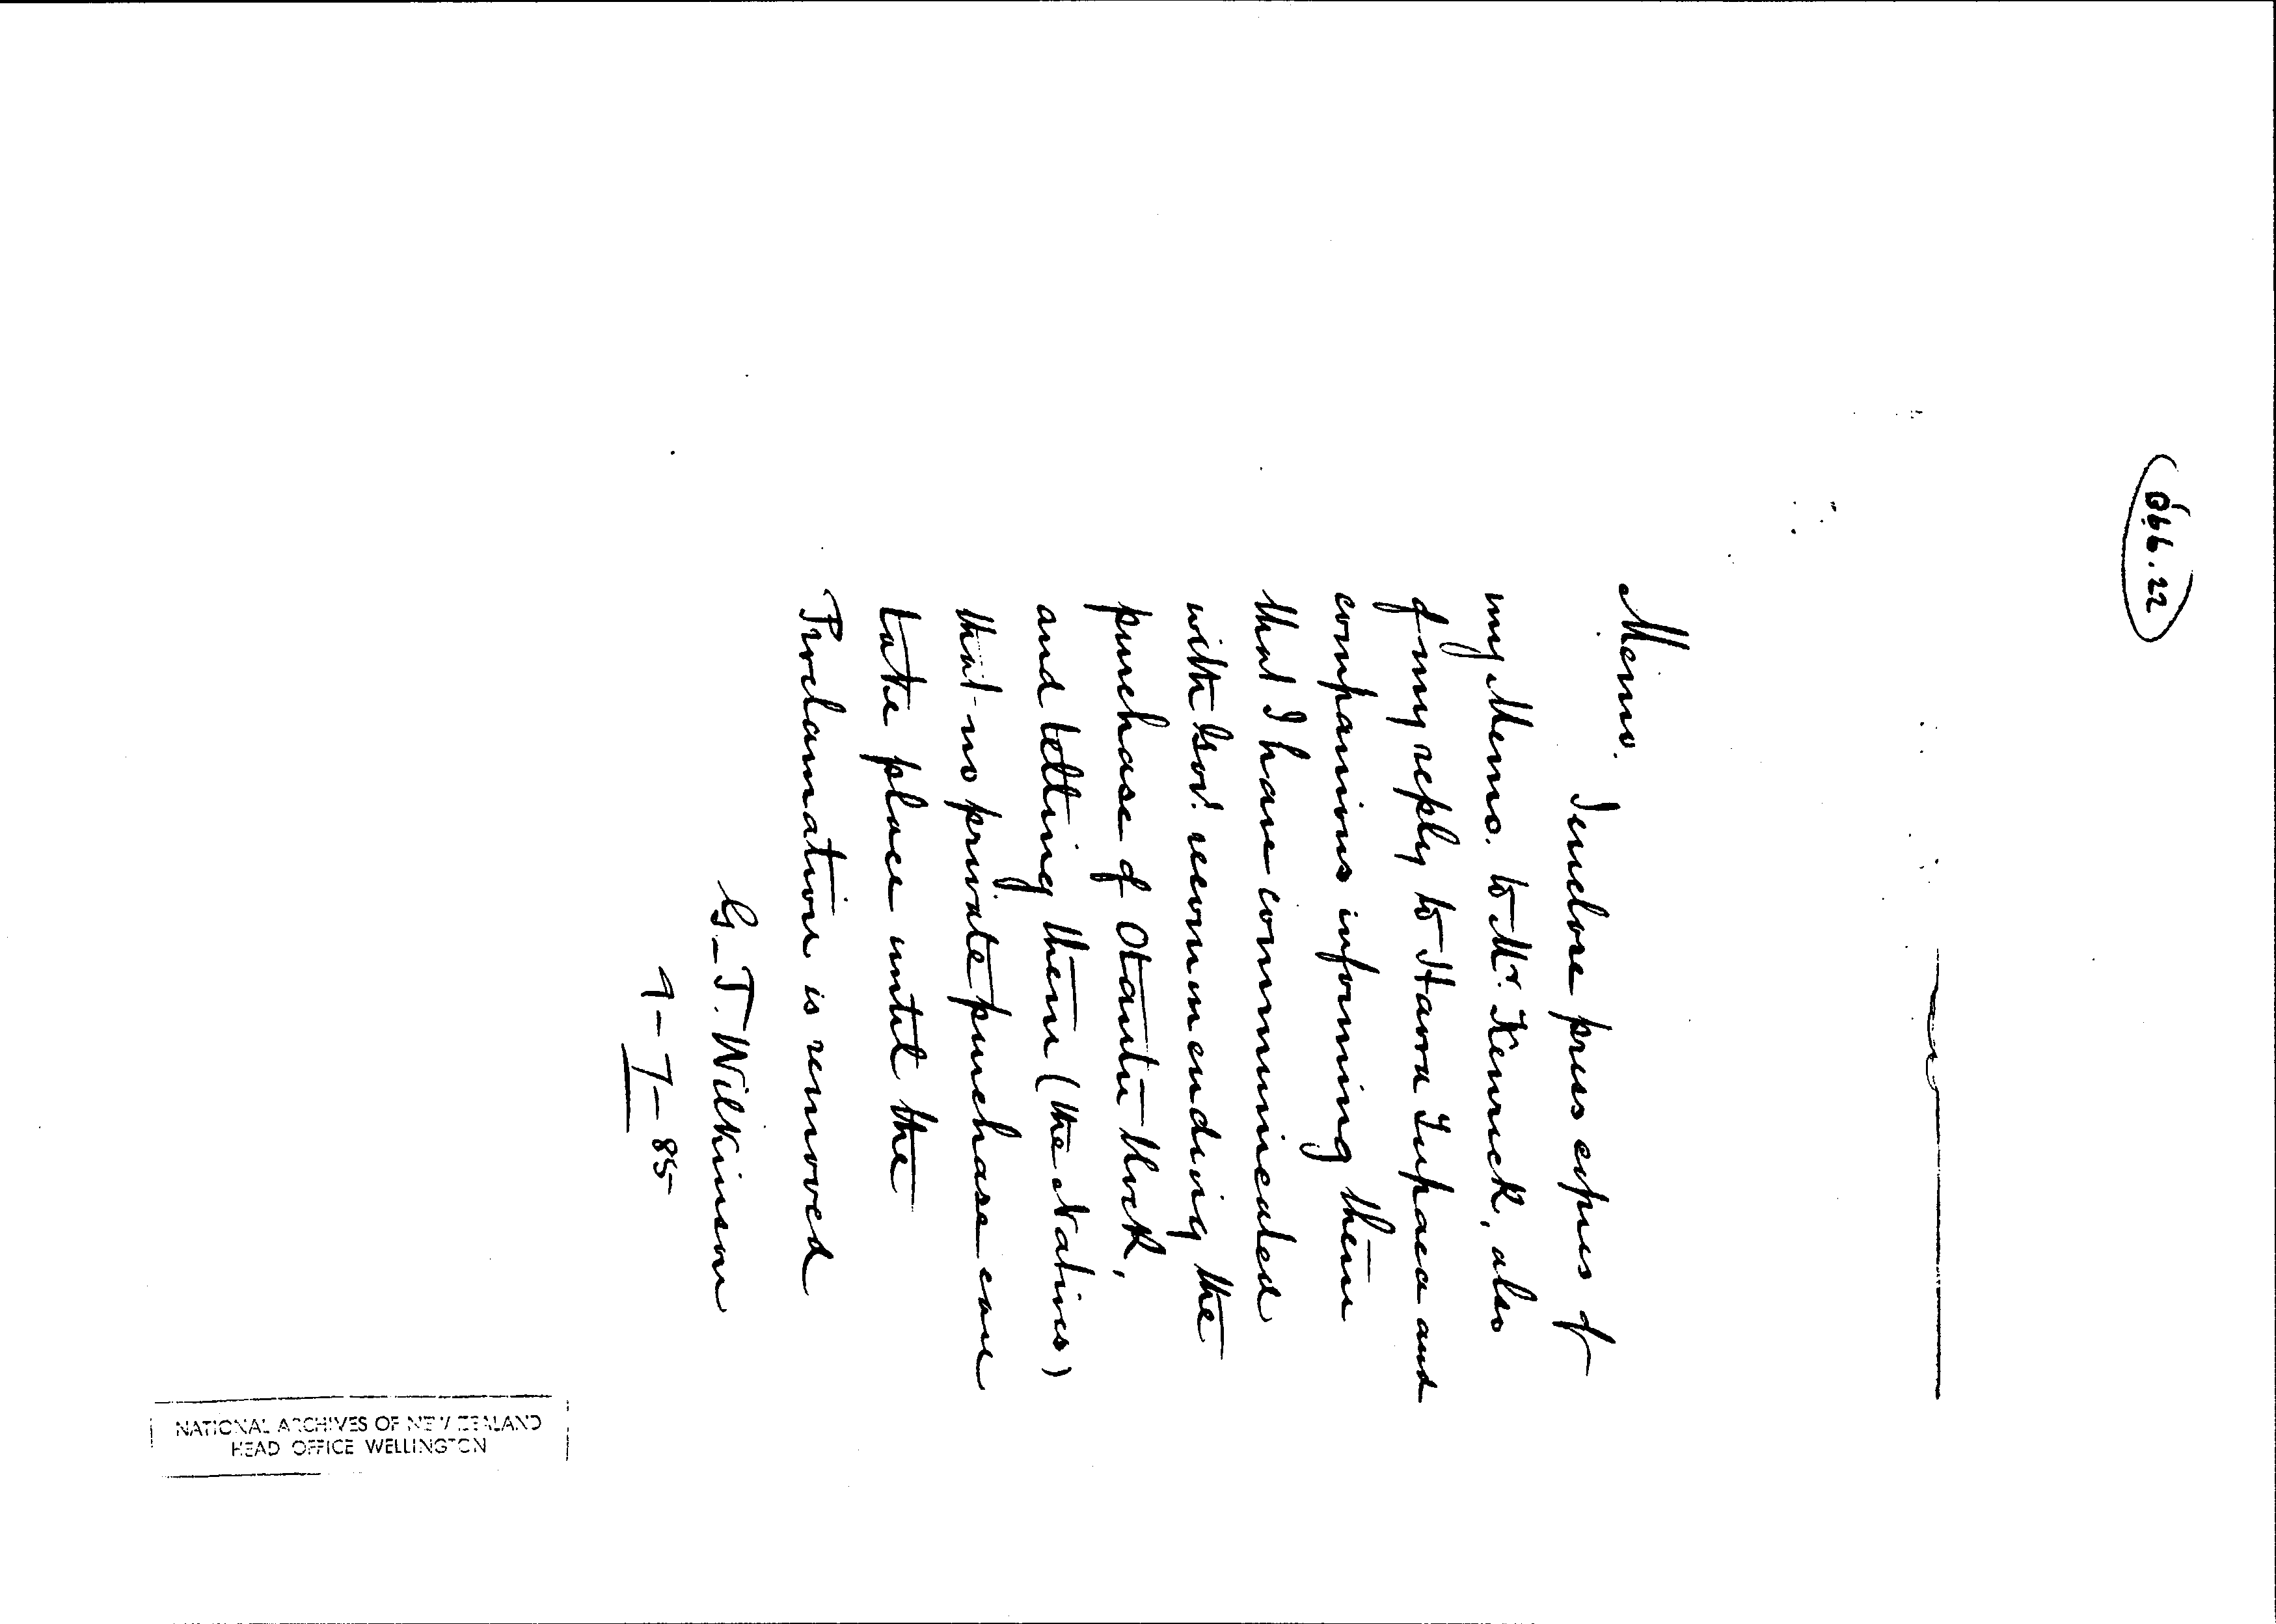 066.22
Memo.
I enclose press copies of
my Memo. to Mr. Kenrick, also
of my reply to Haora Tupaea and
companions informing them
that I have communicated
with Govt. recommending the
purchase of Otautu block,
and telling them (the Natives)
that no private purchase can
take place until the
Proclamation is removed
G. T. Wilkinson
9-7-85
NATIONAL ARCHIVES OF NEW ZEALAND
HEAD OFFICE WELLINGTON